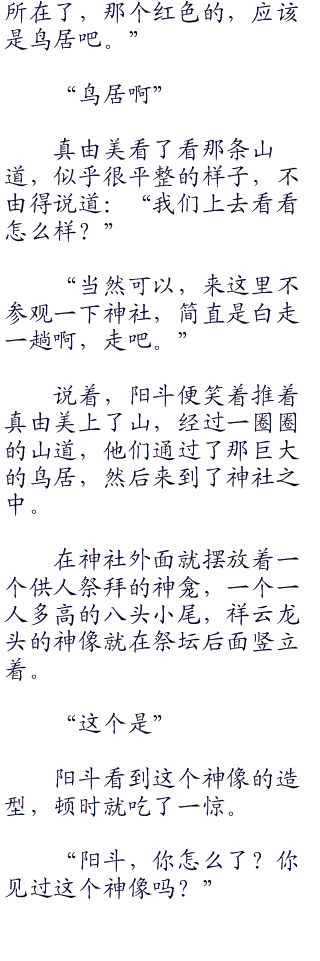 所在了，那个红色的，应该
是鸟居吧。”
“鸟居啊”
真由美看了看那条山
道，似乎很平整的样子，不
由得说道：“我们上去看看
怎么样？”
“当然可以，来这里不
参观一下神社，简直是白走
一趟啊，走吧。”
说着，阳斗便笑着推着
真由美上了山，经过一圈圈
的山道，他们通过了那巨大
的鸟居，然后来到了神社之
中。
在神社外面就摆放着一
个供人祭拜的神龛，一个一
人多高的八头小尾，祥云龙
头的神像就在祭坛后面竖立
着。
“这个是”
阳斗看到这个神像的造
型，顿时就吃了一惊。
“阳斗，你怎么了？你
见过这个神像吗？”